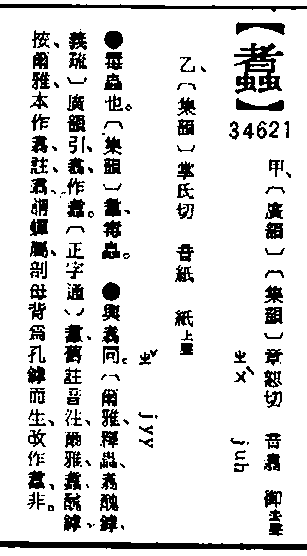 【䘂】
34621
甲、〔廣韻〕〔集韻〕章恕切 音翥 御去聲
ㄓㄨˋ juh
乙、〔集韻〕掌氏切 音紙 紙上聲
ㄓˇ jyy
●毒蟲也。〔集韻〕䘂、毒蟲。 ●與翥同。〔爾雅、釋蟲、翥醜鏬、
義疏〕廣韻引、翥作䘂。〔正字通〕䘂、舊註音注、爾雅、䘂醜鏬、
按、爾雅本作翥、註、翥、謂蟬屬、剖母背爲孔鏬而生、改作䘂、非。